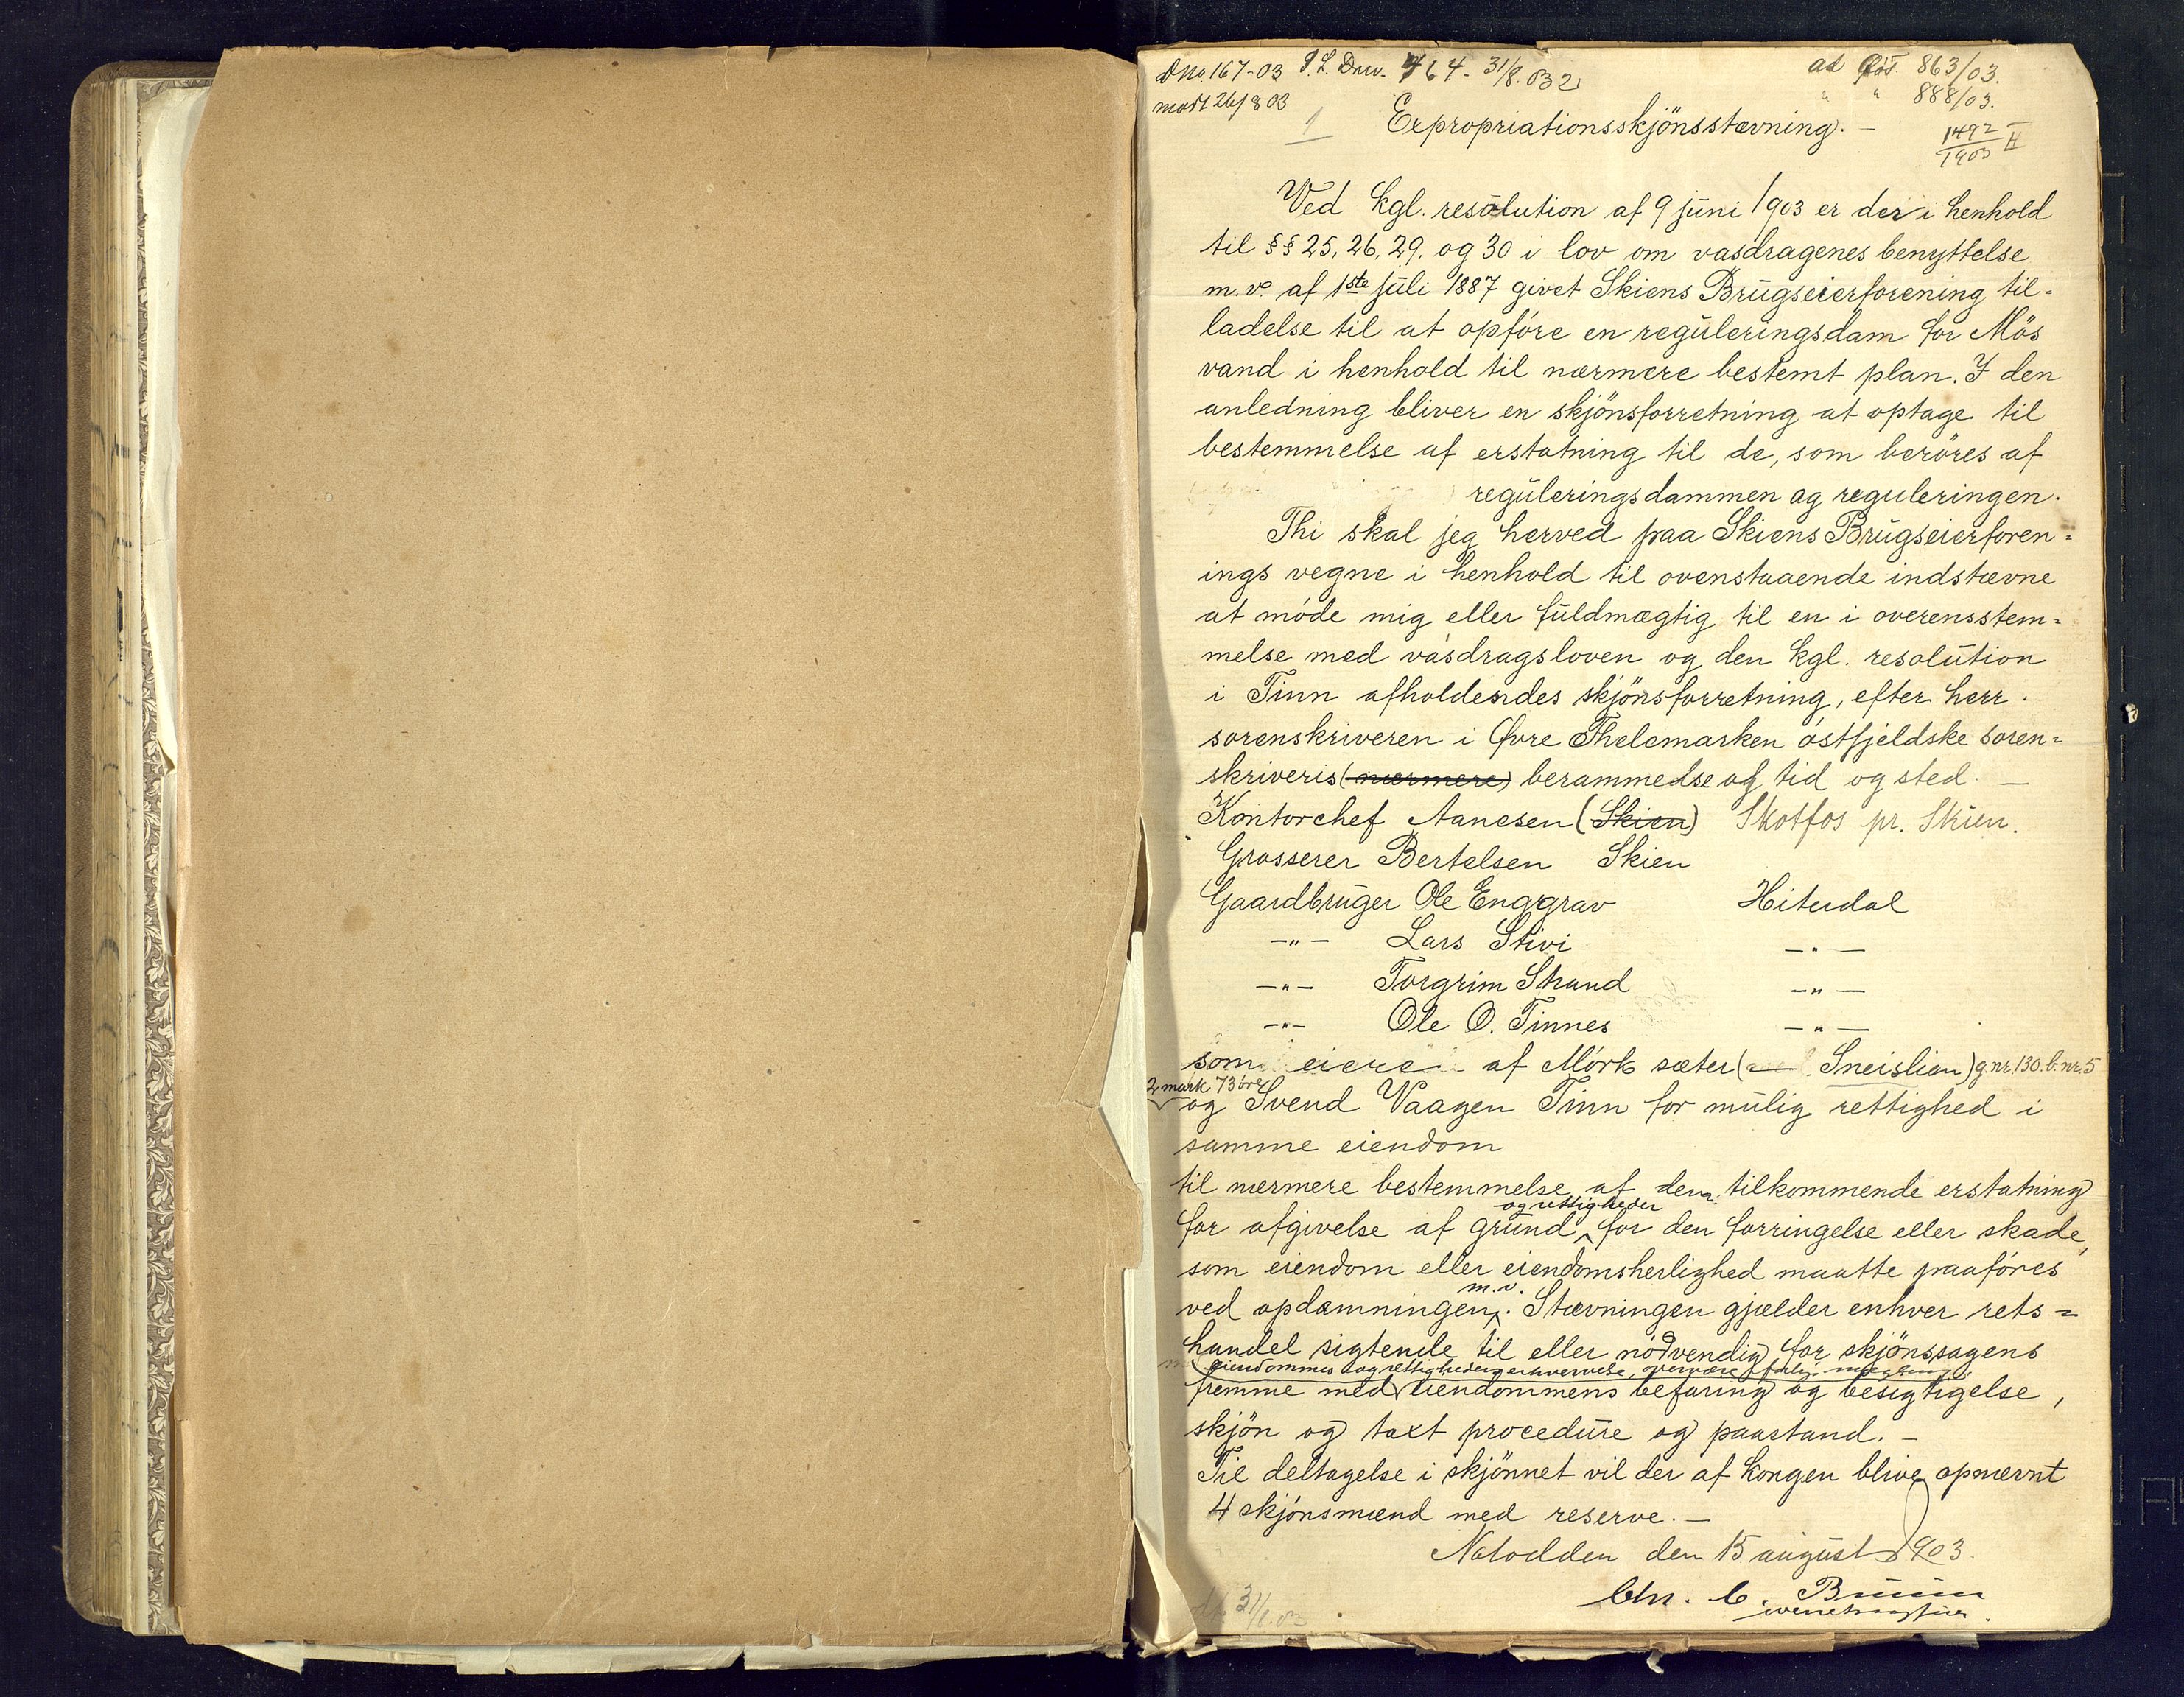 DNo 167-03 S. L. Drw. 464 - 31/8.03 2 ad Pos. 863/03.
modt 26/8 03 " " 888/03.
1 Expropriationsskjönsstævning. — 1492/1903 II
Ved kgl. resolution af 9 juni 1903 er der i henhold
til §§ 25, 26, 29. og 30 i lov om vasdragenes benyttelse
m.v. af 1ste juli 1887 givet Skiens Brugseierforening til-
ladelse til at opföre en reguleringsdam for Mös
vand i henhold til nærmere bestemt plan. I den
anledning bliver en skjönsforretning at optage til
bestemmelse af erstatning til de, som beröres af
reguleringsdammen og reguleringen.
Thi skal jeg herved paa Skiens Brugseierforen-
ings vegne i henhold til ovenstaaende indstævne
at möde mig eller fuldmægtig til en i overensstem-
melse med vasdragsloven og den kgl. resolution
i Tinn afholdendes skjönsforretning, efter herr.
sorenskriveren i Øvre Thelemarken östfjeldske soren-
skriveris (nærmere) berammelse af tid og sted. —
Kontorchef Aanesen (Skien) Skotfos pr. Skien.
Grosserer Bertelsen Skien
Gaardbruger Ole Enggrav Hiterdal
—"— Lars Stivi —"—
—"— Torgrim Strand —"—
—"— Ole O. Tinnes —"—
som eiere af Mörk sæter ( Sneislien) g.nr. 130. b.nr. 5
2 mark 73 öre
og Svend Vaagen Tinn for mulig rettighed i
samme eiendom
til nærmere bestemmelse af den tilkommende erstatning
og rettigheder
for afgivelse af grund, for den forringelse eller skade,
som eiendom eller eiendomsherlighed maatte paaföres
m.v.
ved opdæmningen. Stævningen gjælder enhver rets-
handel sigtende til eller nödvendig for skjönssagens
eiendommes og rettigheders erhvervelse,
fremme med eiendommens befaring og besigtigelse,
skjön og taxt procedure og paastand. —
Til deltagelse i skjönnet vil der af kongen blive opnævnt
4 skjönsmænd med reserve. —
Notodden den 15 august 1903.
Chr. C. Bruun